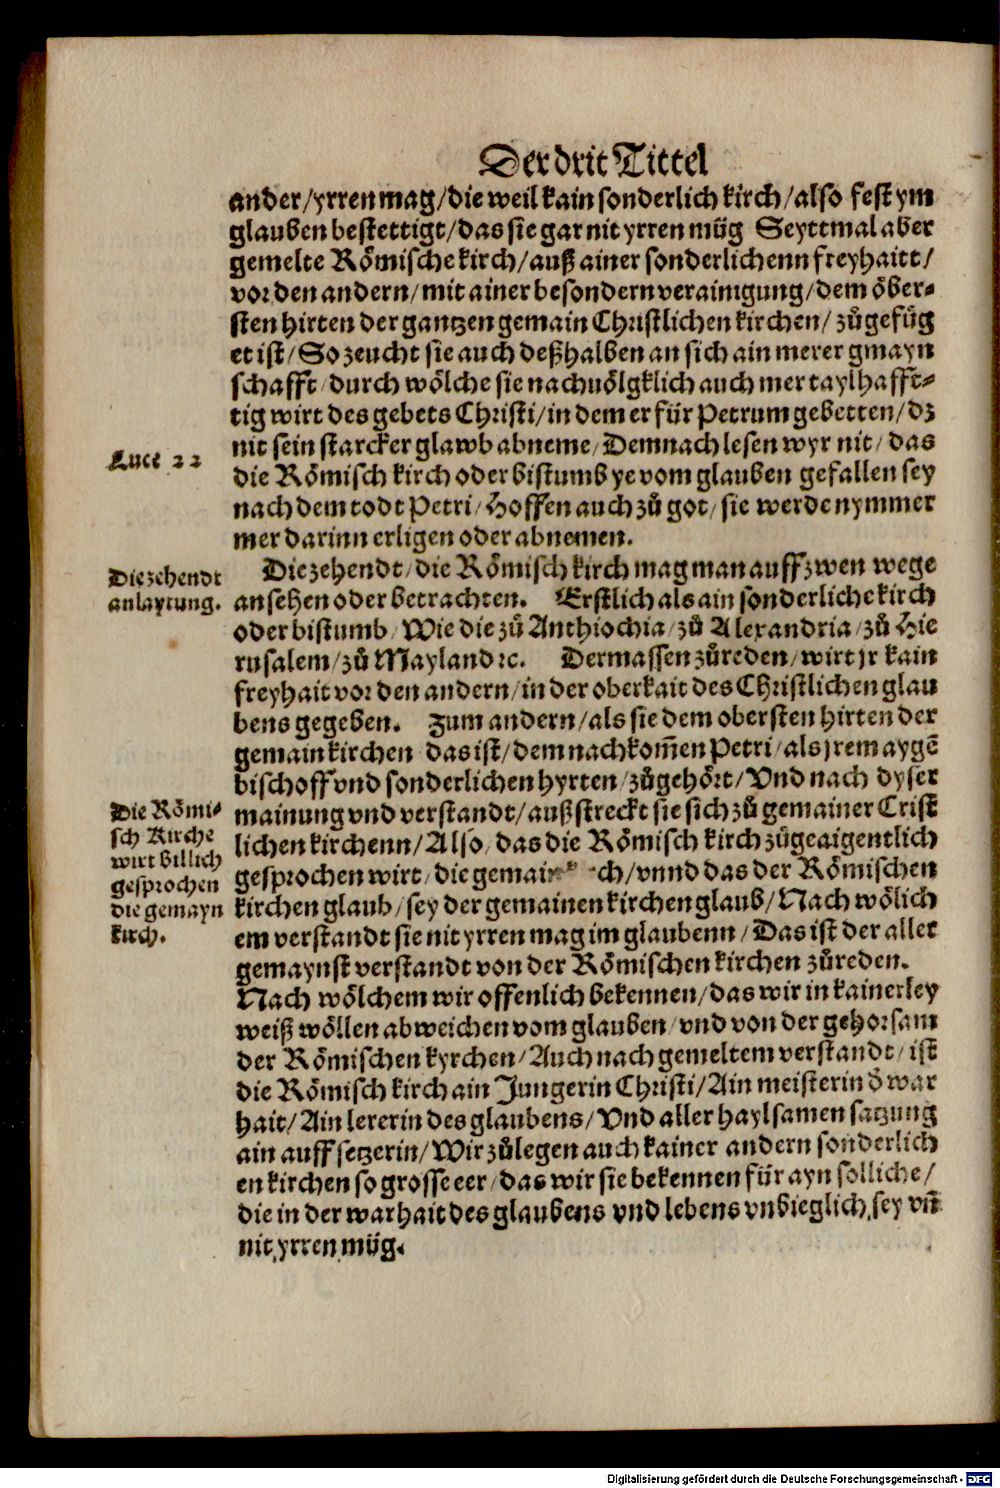 Der drit Tittel
ander/yrren mag/die weil kain sonderlich kirch/also fest ym
glauben bestettigt/das sie gar nit yrren müg Seyttmal aber
gemelte Römische kirch/auß ainer sonderlichenn freyhaitt/
vor den andern/mit ainer besondern verainigung/dem öber⸗
sten hirten der gantzen gemain Christlichen kirchen/zůgefüg
et ist/So zeucht sie auch deßhalben an sich ain merer gmayn
schafft/durch wölche sie nachuölgklich auch mer taylhafft⸗
tig wirt des gebets Christi/in dem er für Petrum gebetten/dz
nit sein starcker glawb abneme/Demnach lesen wyr nit/das
Luce 22
die Römisch kirch oder bistumb ye vom glauben gefallen sey
nach dem todt Petri/Hoffen auch zů got/sie werde nymmer
mer darinn erligen oder abnemen.
Die zehendt
anlaytung.
Die zehendt/die Römisch kirch mag man auff zwen wege
ansehen oder betrachten. Erstlich als ain sonderliche kirch
oder bistumb/Wie die zů Anthiochia/zů Alexandria/zů Hie
rusalem/zů Mayland ꝛc. Dermassen zůreden/wirt jr kain
freyhait vor den andern/in der oberkait des Christlichen glau
bens gegeben. Zum andern/als sie dem obersten hirten der
gemain kirchen das ist/dem nachkom̃en Petri/als jrem aygẽ
bischoff vnd sonderlichen hyrten/zůgehört/Vnd nach dyser
Die Römi⸗
sch Kirche
wirt billich
gesprochen
die gemayn
kirch.
mainung vnd verstandt/außstreckt sie sich zů gemainer Crist
lichen kirchenn/Also/das die Römisch kirch zůgeaigentlich
gesprochen wirt/die gemai ch/vnnd das der Römischen
kirchen glaub/sey der gemainen kirchen glaub/Nach wölich
em verstandt sie nit yrren mag im glaubenn/Das ist der aller
gemaynst verstandt von der Römischen kirchen zůreden.
Nach wölchem wir offenlich bekennen/das wir in kainerley
weiß wöllen abweichen vom glauben/vnd von der gehorsam
der Römischen kyrchen/Auch nach gemeltem verstandt/ist
die Römisch kirch ain Jungerin Christi/Ain meisterin ð war
hait/Ain lererin des glaubens/Vnd aller haylsamen satzung
ain auffsetzerin/Wir zůlegen auch kainer andern sonderlich
en kirchen so grosse eer/das wir sie bekennen für ayn solliche/
die in der warhait des glaubens vnd lebens vnbieglich sey vñ
nit yrren müg.
Digitalisierung gefördert durch die Deutsche Forschungsgemeinschaft - DFG